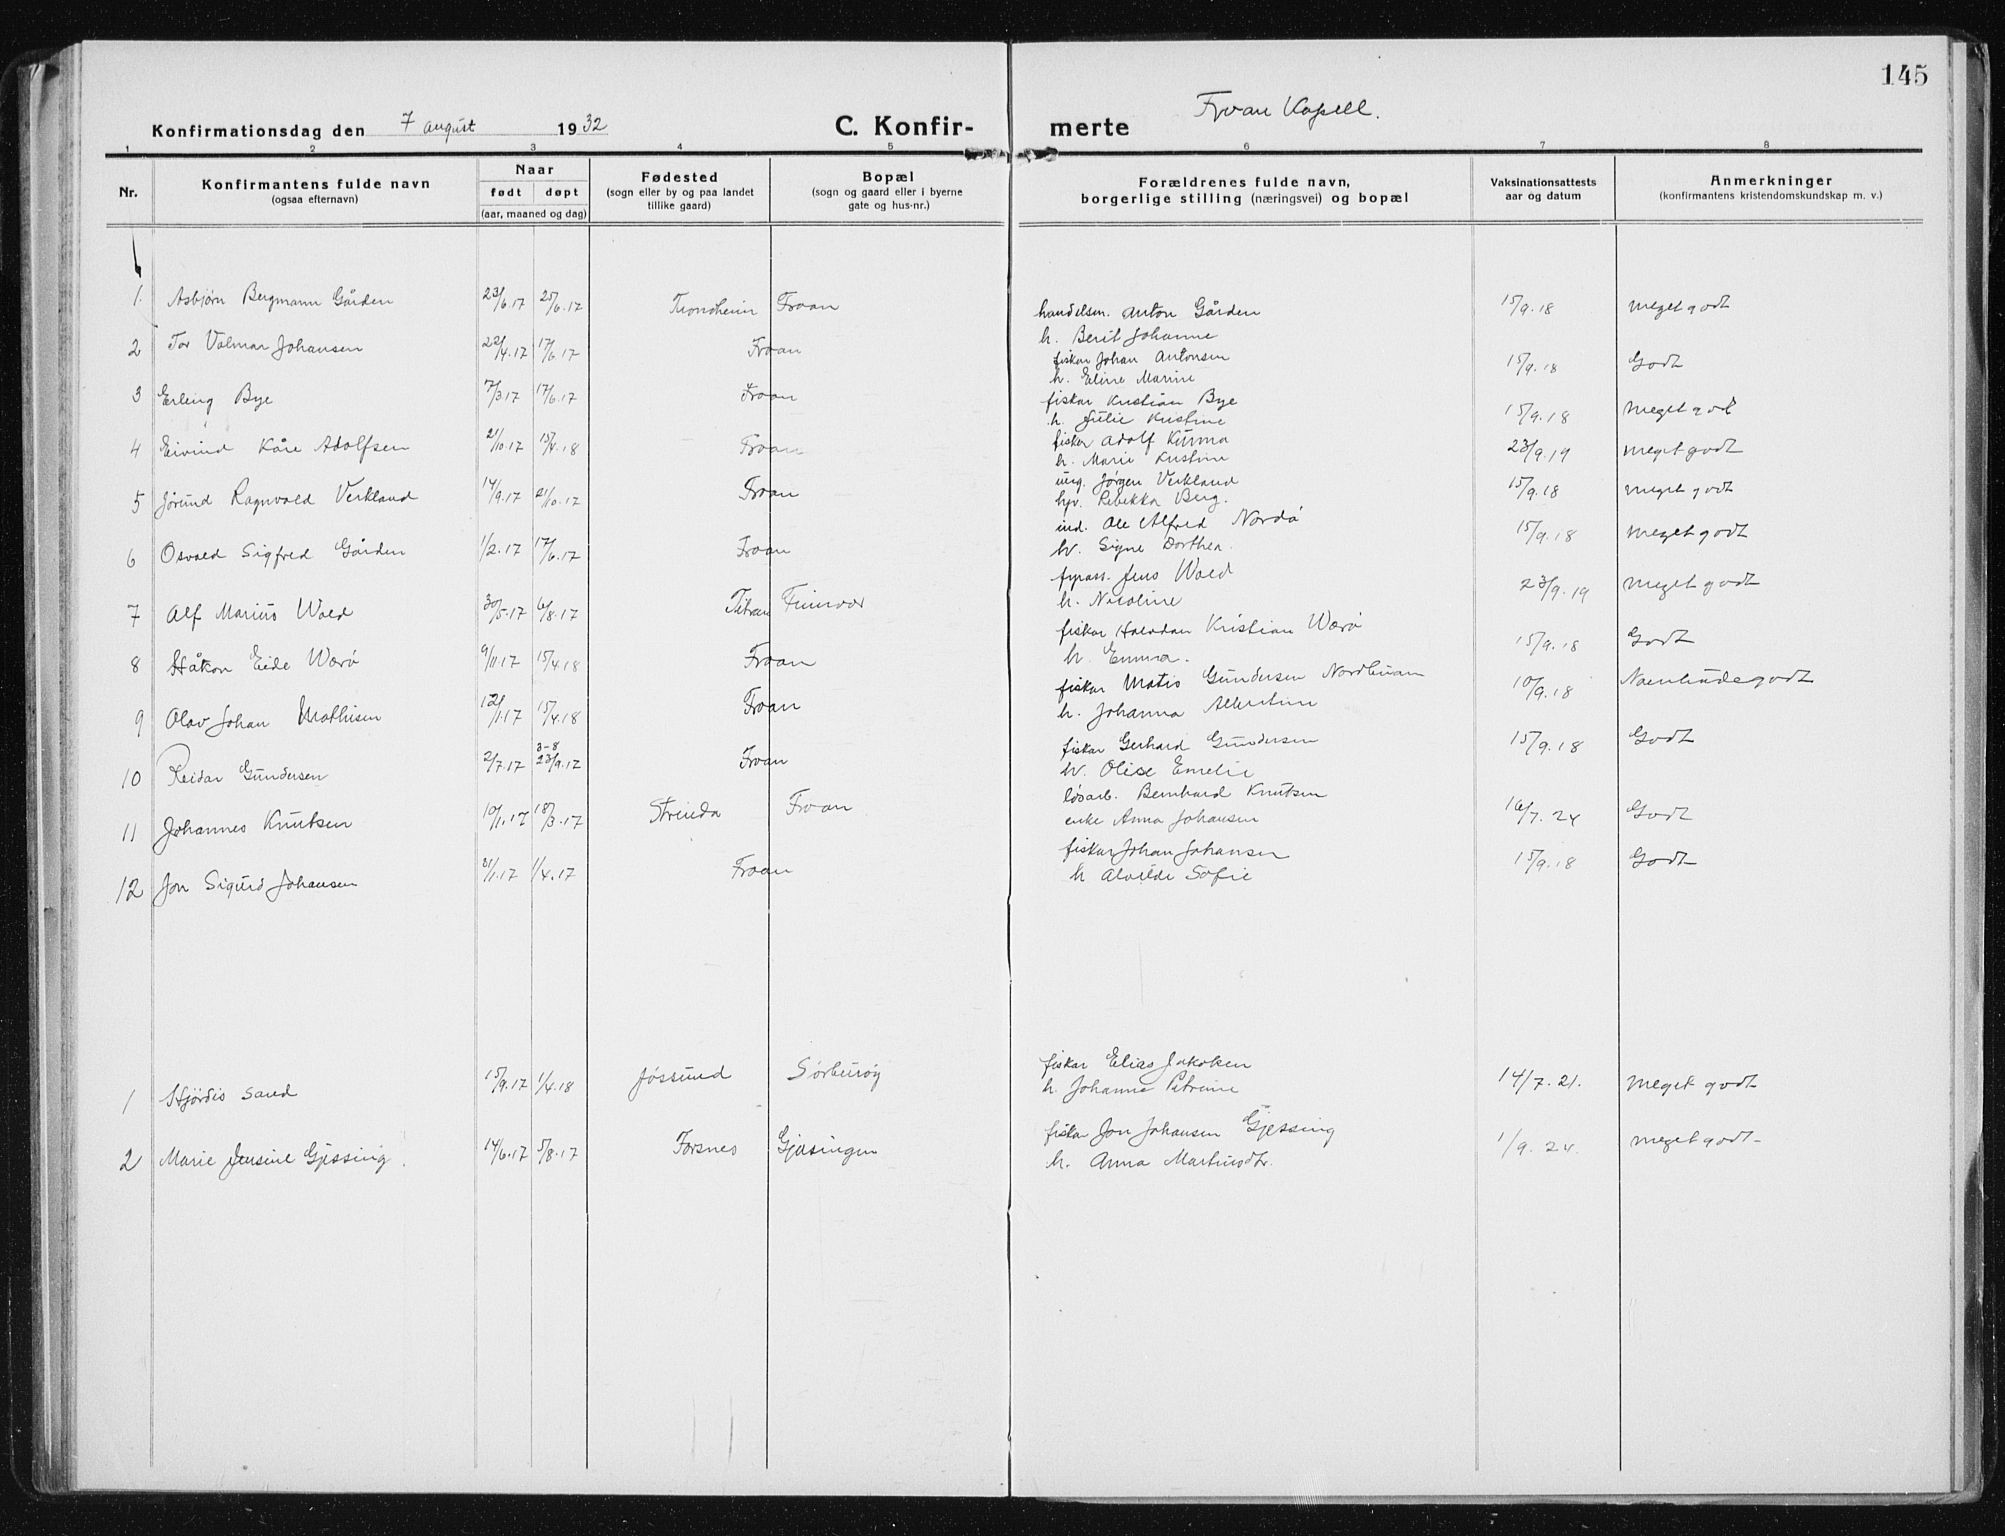 145
Konfirmationsdag den 7 august 1932 C. Konfir- merte Froan Kapell.
1 2 3 4 5 6 7 8
Nr. Konfirmantens fulde navn (ogsaa efternavn) Naar født døpt (aar, maaned og dag) Fødested (sogn eller by og paa landet tillike gaard) Bopæl (sogn og gaard eller i byerne gate og hus-nr.) Forældrenes fulde navn, borgerlige stilling (næringsvei) og bopæl Vaksinationsattests aar og datum Anmerkninger (konfirmantens kristendomskundskap m. v.)
1. Asbjørn Bergmann Gården 23/6.17 25/6.17 Trondheim Froan handelsm. Anton Gården 15/9.18 meget godt
h. Berit Johanne
2 Tor Valmar Johansen 22/4.17 17/6.17 Froan fiskar Johan Antonsen 15/9.18 Godt
h. Eline Marine
3 Erling Bye 7/3.17 17/6.17 Froan fiskar Kristian Bye 15/9.18 meget godt
h. Julie Kristine
4 Eivind Kåre Adolfsen 21/10.17 15/4.18 Froan fisker Adolf Kunna 23/9.19 meget godt
h. Marie Kristine
5 Jørund Ragnvald Verkland 14/9.17 21/10.17 Froan ung. Jørgen Verkland 15/9.18 meget godt
Rebekka Berg.
6 Osvald Sigfred Gården 1/2.17 17/6.17 Froan ind. Ole Alfred Nordø 15/9.18 meget godt
h. Signe Dorthea.
7 Alf Marius Wold 30/5.17 6/8.17 Titran Finnvær fyrass. Jens Wold 23/9.19 meget godt
h. Nicoline
8 Håkon Eide Werø 9/11.17 15/4.18 Froan fiskar Halvdan Kristian Werø 15/9.18 Godt
h. Emma.
9 Olav Johan Mathisen 15/4.18 Froan fiskar Matis Gundersen Nordbuan 10/9.18 Noenlunde godt
h. Johanna Albertine
3-8
10 Reidar Gundersen 2/7.17 23/9.17 Froan fiskar Gerhard Gundersen 15/9.18 Godt
h. Olise Emelie
11 Johannes Knutsen 10/1.17 18/3.17 Strinda Froan løsarb. Bernhard Knutsen 16/7.24 Godt
enke Anna Johansen
12 Jon Sigurd Johansen 31/1.17 1/4.17 Froan fiskar Johan Johansen 15/9.18 Godt
h Alvilde Sofie
1 Hjørdis Sand 15/9.17 1/4.18 Jøssund Sørburøy fiskar Elias Jakobsen 14/7.21. meget godt
h. Johanne Petrine
2 Marie Jensine Gjessing. 14/6.17 5/8.17 Forsnes Gjæsingen fiskar Jon Johansen Gjessing 1/9.24. meget godt-
h. Anna Martinsdtr.